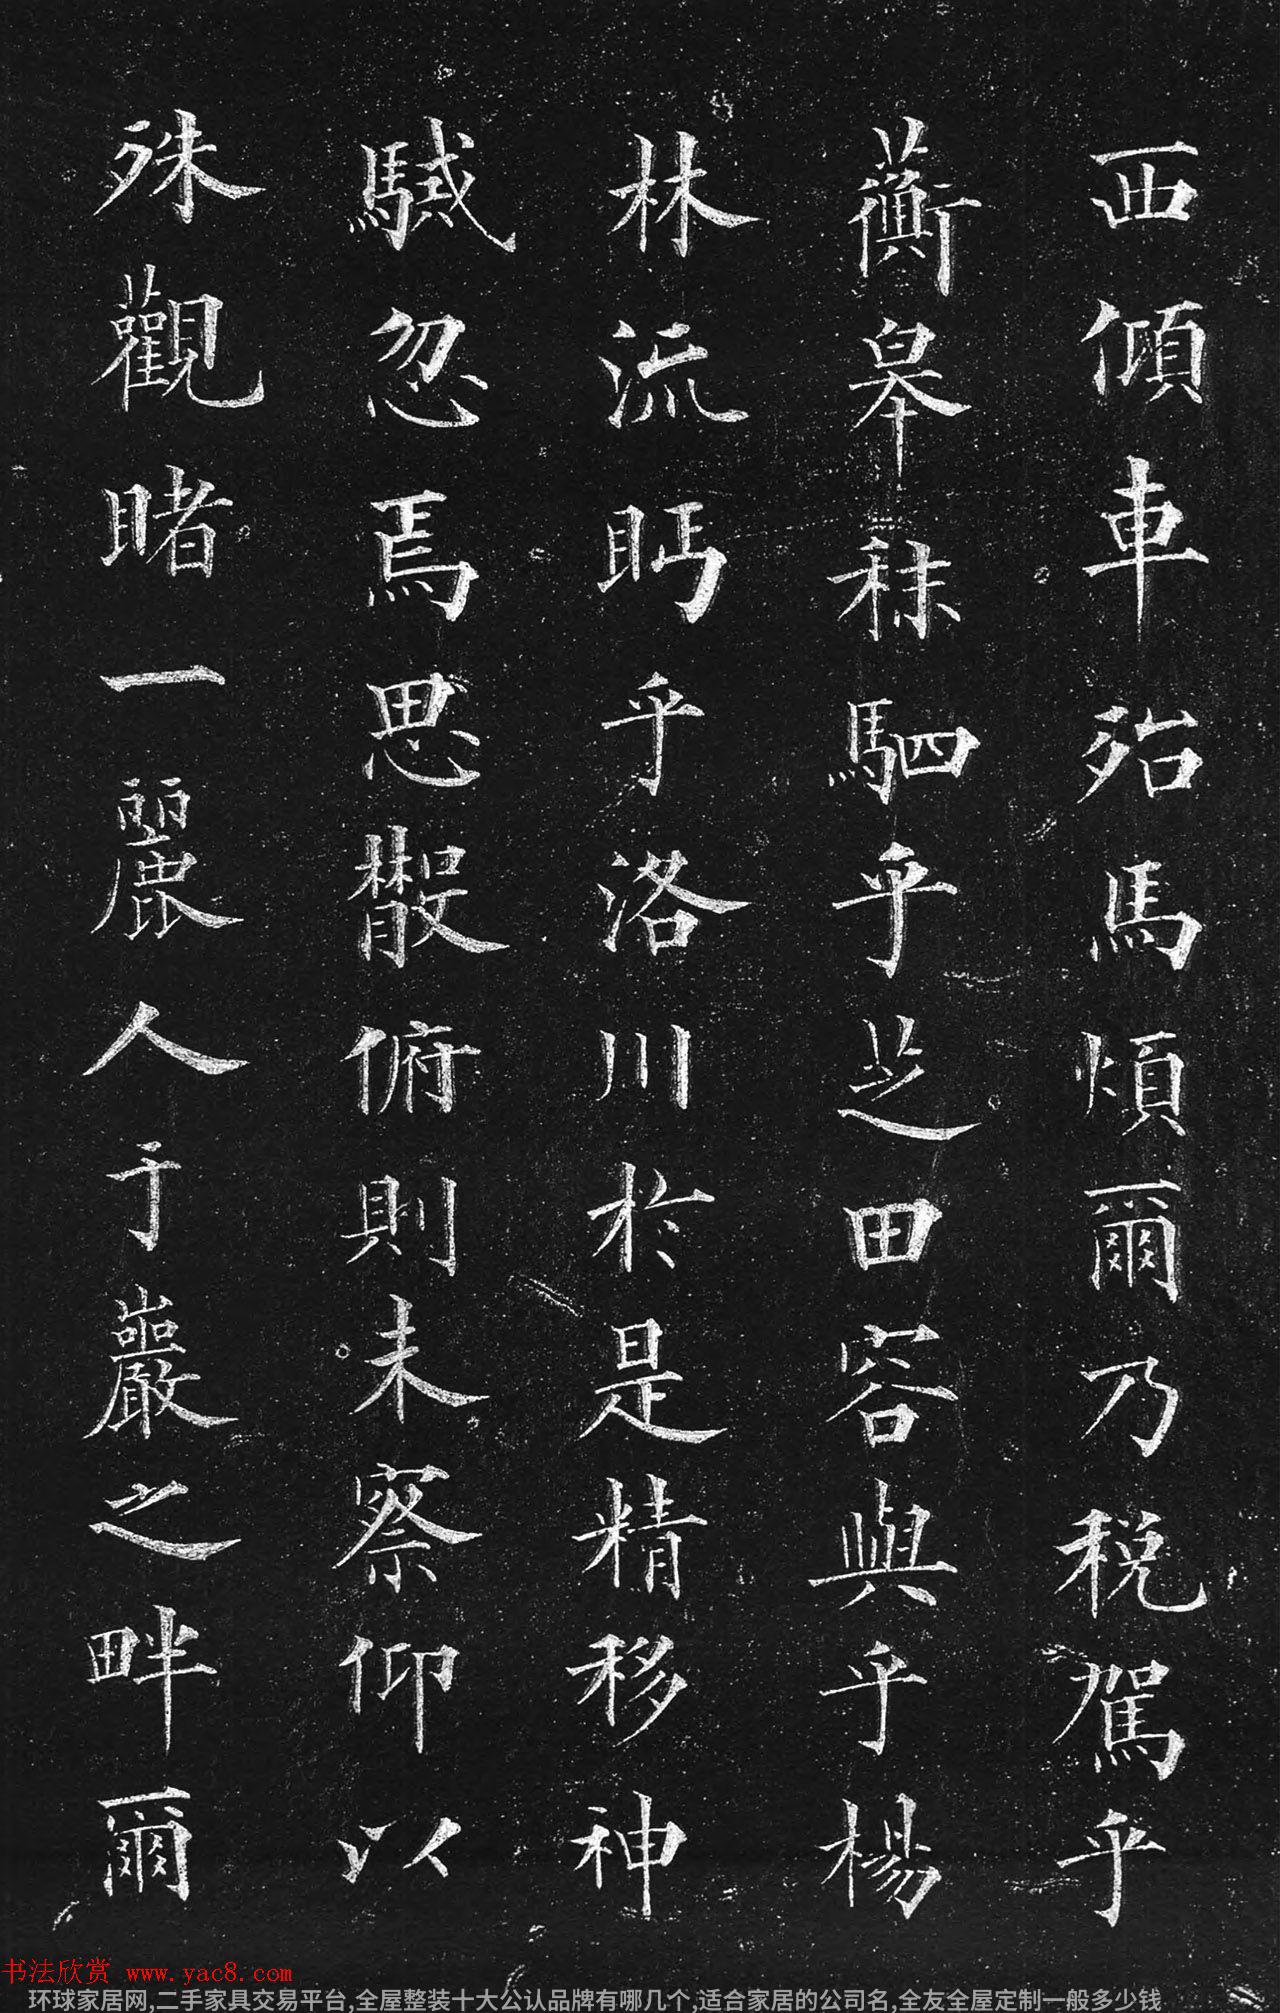 西傾車殆馬煩爾乃稅駕乎
蘅皋秣駟乎芝田容與乎楊
林流眄乎洛川於是精移神
駭忽焉思散俯則未察仰以
殊觀睹一麗人于巖之畔爾
书法欣赏 www.yac8.com
环球家居网,二手家具交易平台,全屋整装十大公认品牌有哪几个,适合家居的公司名,全友全屋定制一般多少钱